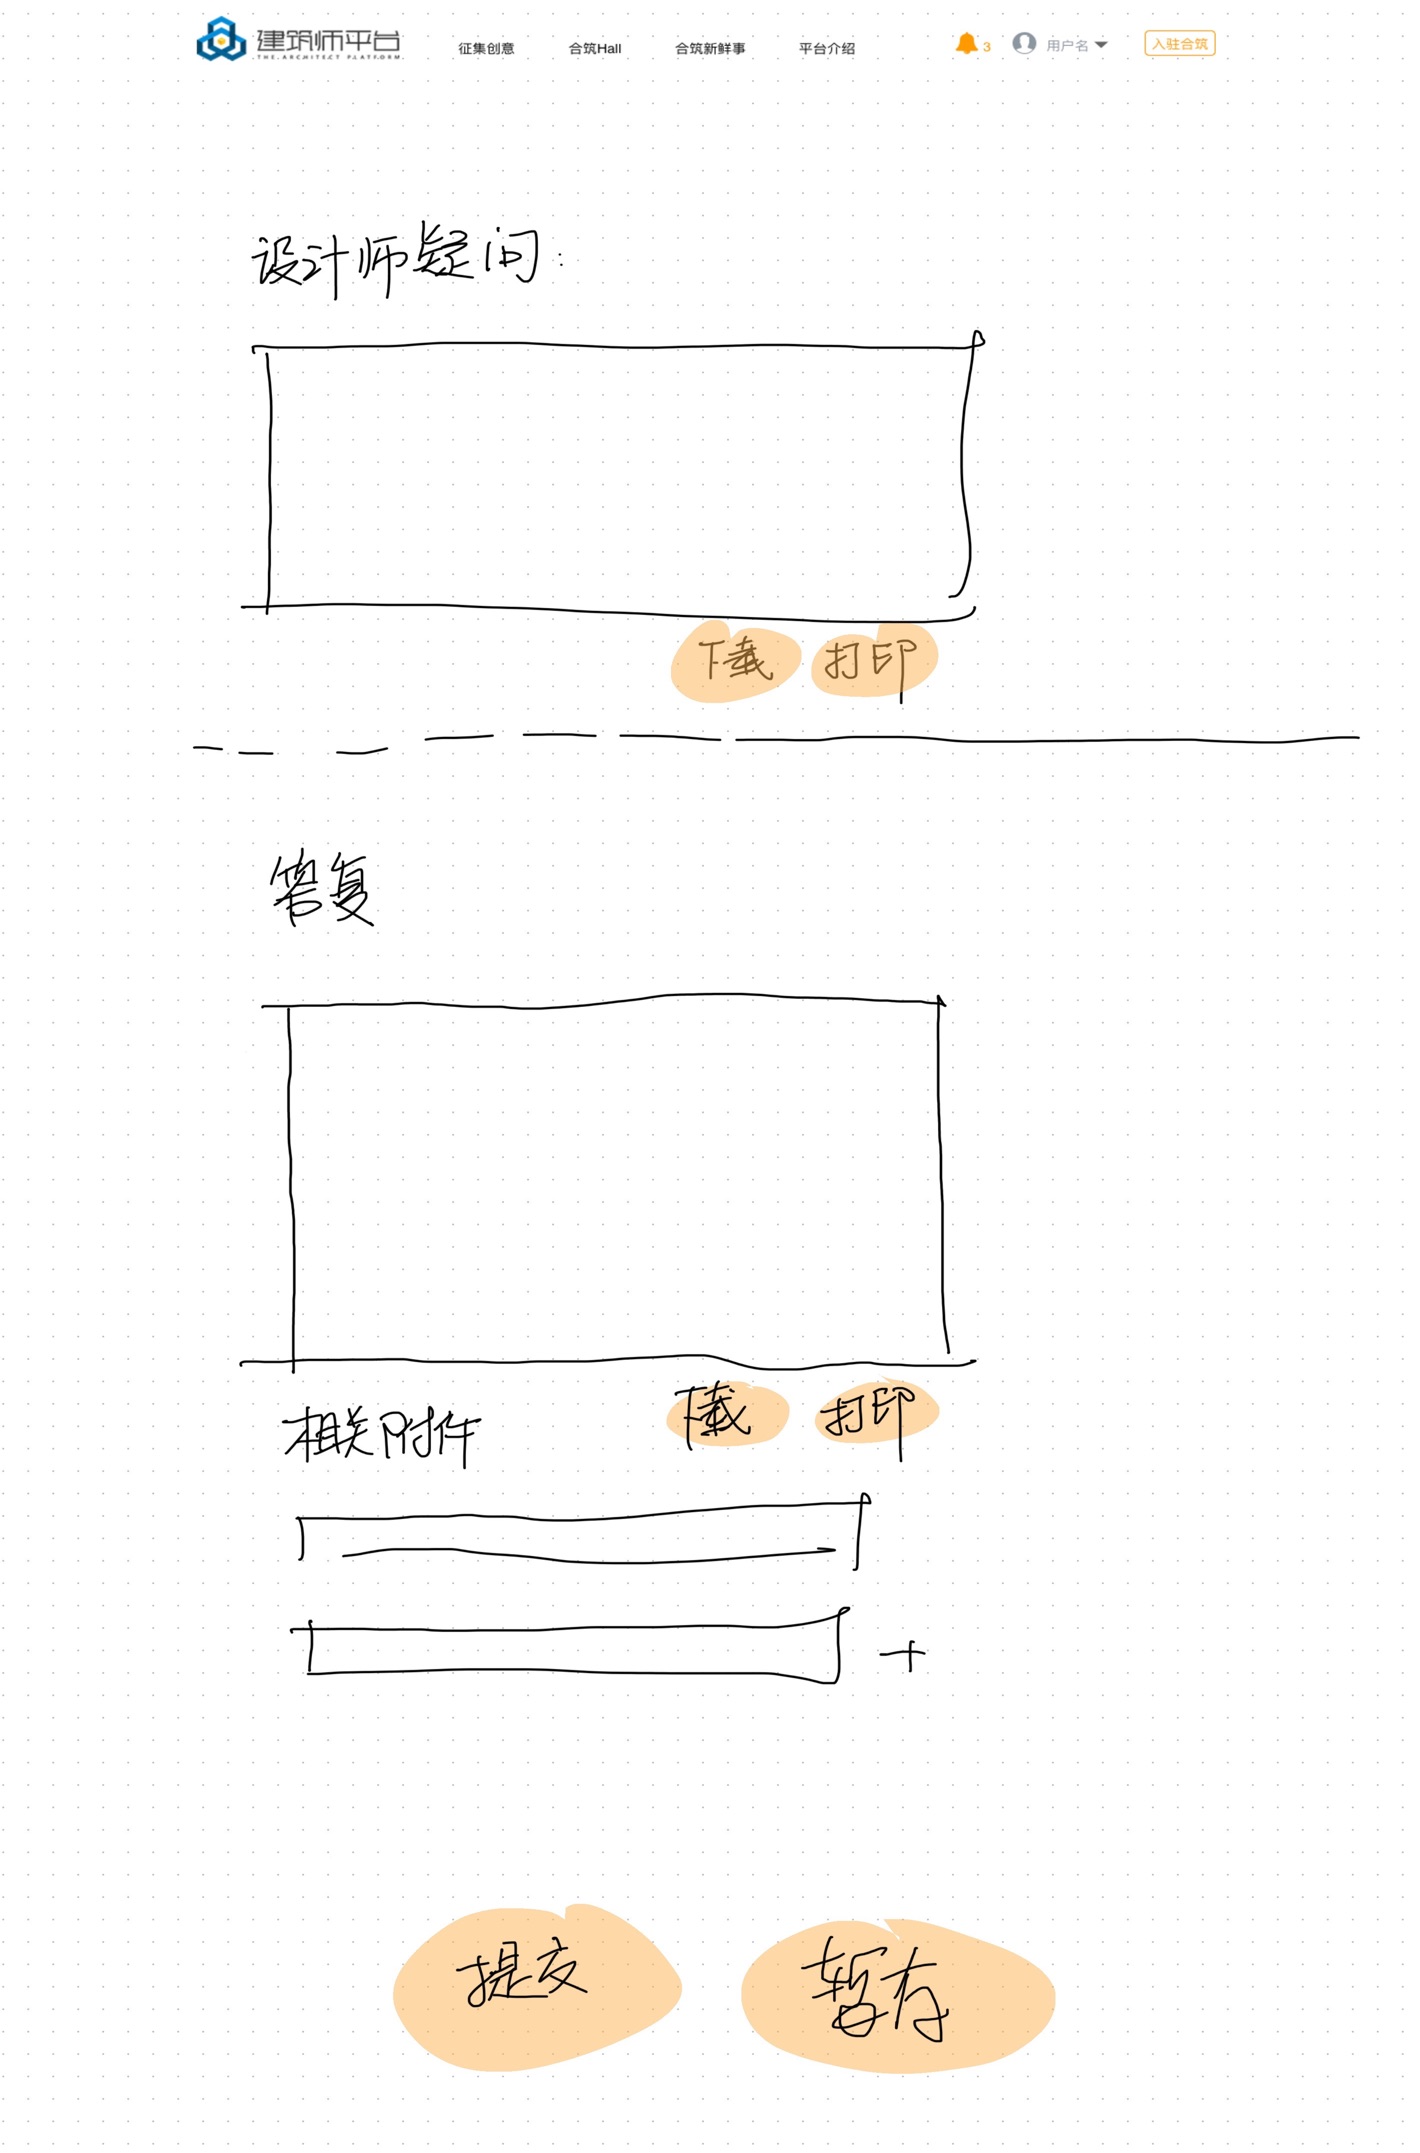 建筑师平台
THE ARCHITECT PLATFORM
征集创意 合筑Hall 合筑新鲜事 平台介绍 3 用户名 入驻合筑
设计师疑问:
下载 打印
答复
下载 打印
相关附件
+
提交 暂存